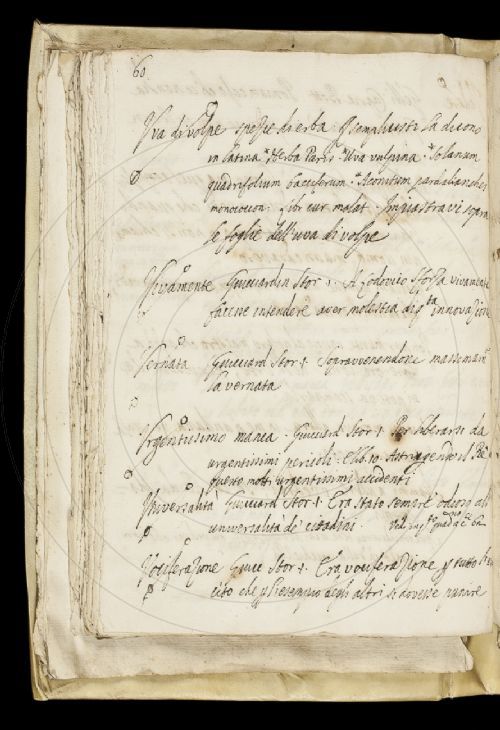 60
Uva di Volpe spezie di erba. I semplicisti la dicono
in latina *Herba Paris *Uva vulpina. *Solanum
quadrifolium bacciferum. *Aconitum pardalianches
monococcon. Libr cur malat. Impiastravi sopra
le foglie dell'uva di volpe
Vivamente Guicciardin Stor 1. A Lodovico Sforza vivamente
faceva intendere aver molestia di q.ta innovazion
Vernata Guicciard Stor 1 Sopravvenendone massimam
la vernata
Urgentissimo manca. Guicciard Stor 1 Per liberarsi da
urgentissimi pericoli. E lib. 10
molti urgentissimi accidenti
Universalità Guicciard Stor 1 Era stato sempre odioso all
universalità de' cittadini.
Vociferazione Guicc Stor 1. Era vociferazione p tutto
cito che degli altri si dovesse